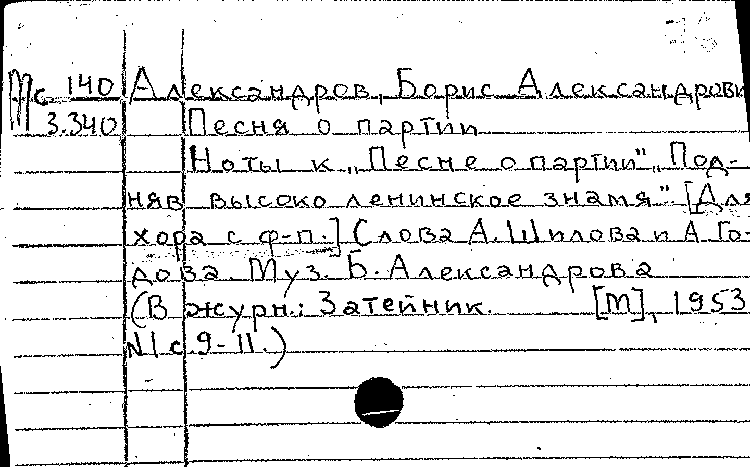 Мс 140 Александров, Борис Александрови
3.340 Песня о партии
Ноты к „Песне о партии" „Под-
няв высоко ленинское знамя". [Для
хора с ф-п.] Слова А. Шилова и А. Го-
дова. Муз. Б. Александрова
(В журн.: Затейник. [М], 1953
N1 с. 9-11.)